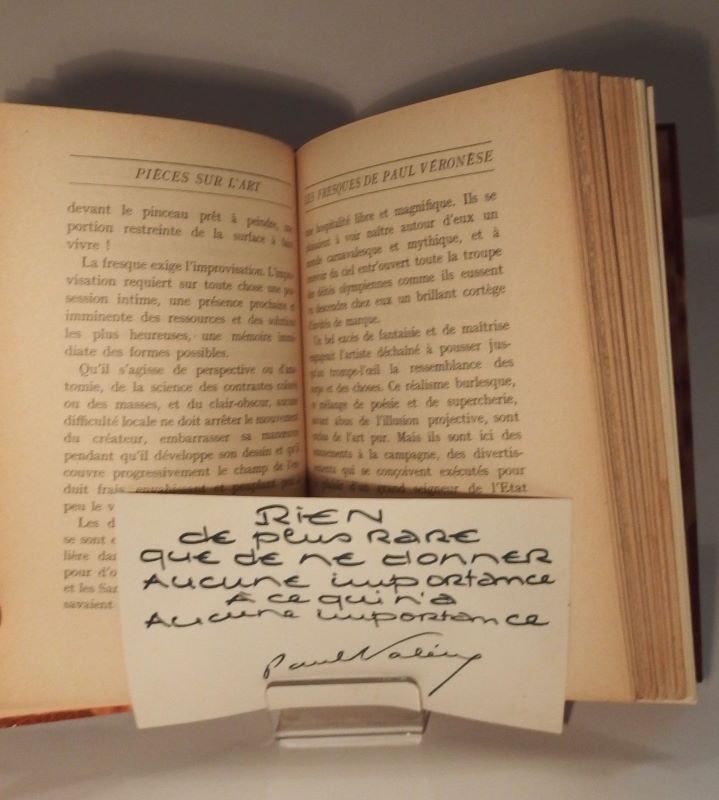 PIÈCES SUR L'ART
devant le pinceau prêt à peindre, une
portion restreinte de la surface à faire
vivre !
La fresque exige l'improvisation. L'impro-
visation requiert sur toute chose une pos-
session intime, une présence prochaine et
imminente des ressources et des solutions
les plus heureuses, une mémoire immé-
diate des formes possibles.
Qu'il s'agisse de perspective ou d'ana-
tomie, de la science des contrastes colorés
ou des masses, et du clair-obscur, aucune
difficulté locale ne doit arrêter le mouvement
du créateur, embarrasser sa manœuvre
pendant qu'il développe son dessin et qu'il
couvre progressivement le champ de l'en-
duit frais, envahissant et peuplant peu à
peu le v
Les d
se sont
lière da
pour d'o
et les Sa
savaient
LES FRESQUES DE PAUL VÉRONÈSE
une hospitalité libre et magnifique. Ils se
plaisaient à voir naître autour d'eux un
monde carnavalesque et mythique, et à
recevoir du ciel entr'ouvert toute la troupe
des déités olympiennes comme ils eussent
vu descendre chez eux un brillant cortège
d'invités de marque.
Un bel excès de fantaisie et de maîtrise
engageait l'artiste déchaîné à pousser jus-
qu'au trompe-l'œil la ressemblance des
corps et des choses. Ce réalisme burlesque,
ce mélange de poésie et de supercherie,
autant abus de l'illusion projective, sont
exclus de l'art pur. Mais ils sont ici des
amusements à la campagne, des divertis-
sements qui se conçoivent exécutés pour
le plaisir d'un grand seigneur de l'Etat
RIEN
de plus RARE
que de ne donner
Aucune importance
À ce qui n'a
Aucune importance
Paul Valéry